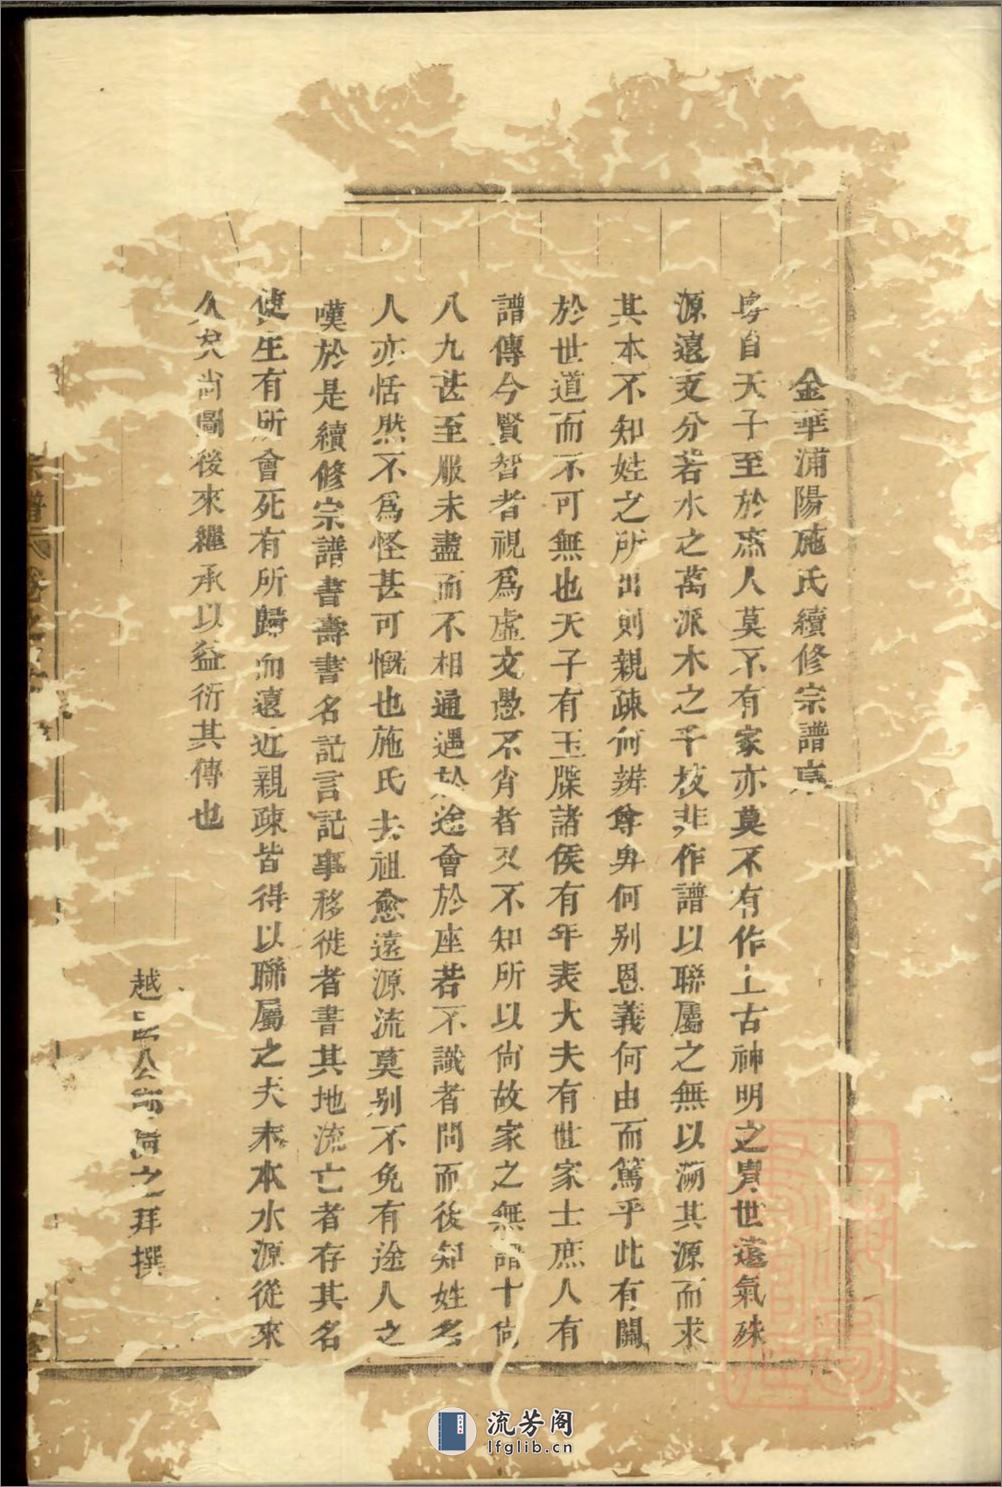 金華浦陽施氏續修宗譜序
粵自天子至於庶人莫不有家亦莫不有作上古神明之冑世遠氣殊
源遠支分若水之萬派木之千枝非作譜以聯屬之無以溯其源而求
其本不知姓之所出則親疎何辨尊卑何别恩義何由而篤乎此有關
於世道而不可無也天子有玉牒諸侯有年表大夫有世家士庶人有
譜傳今賢智者視爲虛文愚不肖者又不知所以尚故家之無譜十尙
八九甚至服未盡而不相通遇於途會於座若不識者問而後知姓名
人亦恬然不爲怪甚可慨也施氏去祖愈遠源流莫别不免有途人之
嘆於是續修宗譜書壽書名記言記事移徙者書其地流亡者存其名
使生有所會死有所歸而遠近親疎皆得以聯屬之夫木本水源從來
久矣尚圖後來繼承以益衍其傳也
越國公 之拜撰
流芳阁
lfglib.cn